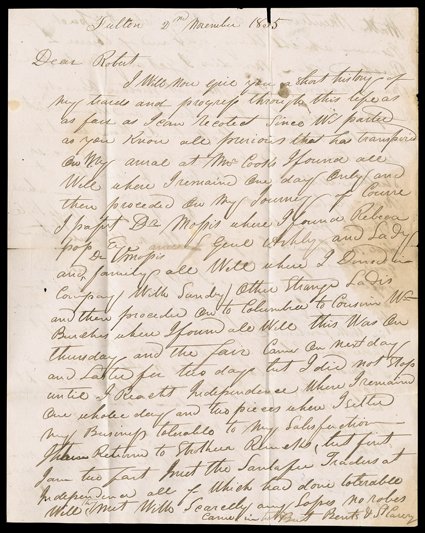 Fulton 2nd November 1835
Dear Robert
I Will Now give you a short history of
my travels and progress through this life as
as far as I can recolect Since We parted
as you Know all previous that has transpired
On my arival at Mrs Cooks I found all
Well where I remaind One day Only and
then proceded On my Journey of Course
I past Dr where I found Rebeca
Genl Ashby and Lady
Dr
and family all Well where I Dined in
Company With Sundry Other Strange Ladis
and then proceded On to Columbia to Cousin Wm
Burches where I found all Well this Was On
thursday and the fair Came On next day
and Lasted for two days but I did not Stop
untill I Reacht Independence Where I remained
One whole day and two pieces where I settled
my Business tolerable to my Satisfaction
Return to but first
I am too fast I met the Santafee Traders at
Independence all of Which had done tolerable
Well Met With Scarcely any Lopes no robes
Came in but Bents & St Carey